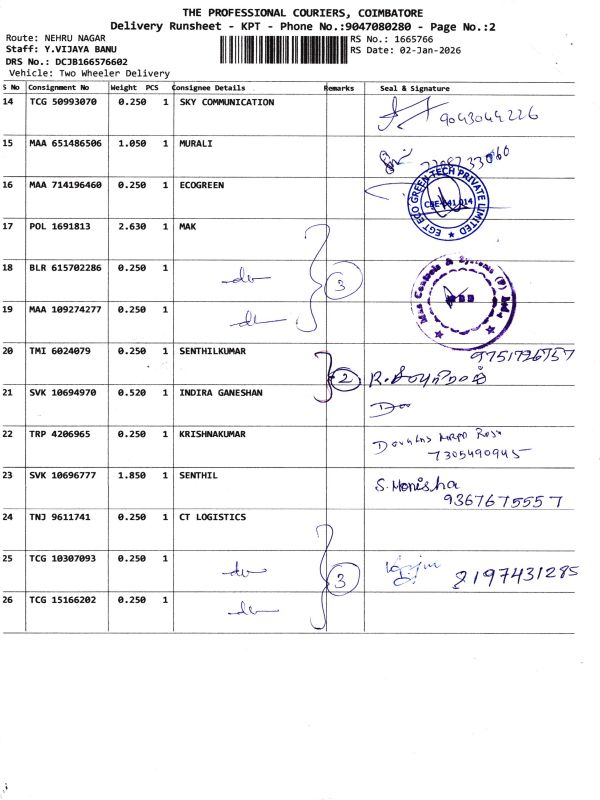 THE PROFESSIONAL COURIERS, COIMBATORE
Delivery Runsheet - KPT - Phone No.:9047080280 - Page No.:2
Route: NEHRU NAGAR
RS No.: 1665766
Staff: Y.VIJAYA BANU
RS Date: 02-Jan-2026
DRS No.: DCJB166576602
Vehicle: Two Wheeler Delivery
S No Consignment No Weight PCS Consignee Details Remarks Seal & Signature
14 TCG 50993070 0.250 1 SKY COMMUNICATION 9043044226
15 MAA 651486506 1.050 1 MURALI
16 MAA 714196460 0.250 1 ECOGREEN
EGT ECO GREEN TECH PRIVATE LIMITED
CBE-641 014
17 POL 1691813 2.630 1 MAK
18 BLR 615702286 0.250 1 do 3
Mak Controls & Systems (P) Ltd.,
19 MAA 109274277 0.250 1 do
20 TMI 6024079 0.250 1 SENTHILKUMAR 2 9751726757
21 SVK 10694970 0.520 1 INDIRA GANESHAN Do
22 TRP 4206965 0.250 1 KRISHNAKUMAR
7305490945
23 SVK 10696777 1.850 1 SENTHIL S. Monisha
9367675557
24 TNJ 9611741 0.250 1 CT LOGISTICS
25 TCG 10307093 0.250 1 do 3 8197431285
26 TCG 15166202 0.250 1 do